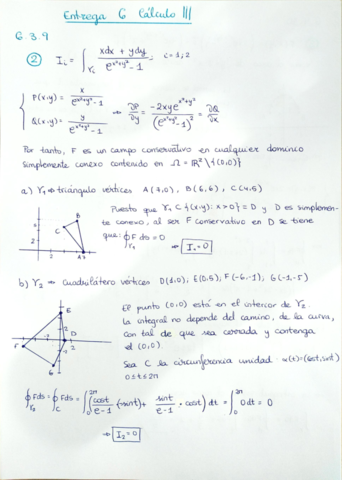 Entrega 6 Cálculo III
6.3.9
② I_i = ∫_{γ_i} (xdx + ydy)/(e^{x²+y²} - 1) ; i = 1; 2
{ P(x,y) = x/(e^{x²+y²} - 1)
Q(x,y) = y/(e^{x²+y²} - 1) ⇒ ∂P/∂y = -2xye^{x²+y²}/(e^{x²+y²} - 1)² = ∂Q/∂x
Por tanto, F es un campo conservativo en cualquier dominio
simplemente conexo contenido en Ω = ℝ² \ {(0,0)}
a) γ₁ ⇒ triángulo vértices B(6,6),
Puesto que γ₁ ⊂ {(x,y): x>0} = D y D es simplemen-
te conexo, al ser F conservativo en D se tiene
que: ∮_{γ₁} F ds = 0
⇒ I₁ = 0
C
B
A
2
b) γ₂ ⇒ Cuadrilátero vértices D(1,0); E(0,5); F(-6,-1); G(-1,-5)
El punto (0,0) está en el interior de γ₂
la integral no depende del camino, de la curva,
con tal de que sea cerrada y contenga
el (0,0).
Sea C la circunferencia unidad: α(t) = (cost, sint)
0 ≤ t ≤ 2π
E
D
F
G
∮_{γ₂} F ds = ∮_C F ds = ∫₀^{2π} [cost/(e-1) (-sint) + sint/(e-1) · cost] dt = ∫₀^{2π} 0 dt = 0
⇒ I₂ = 0